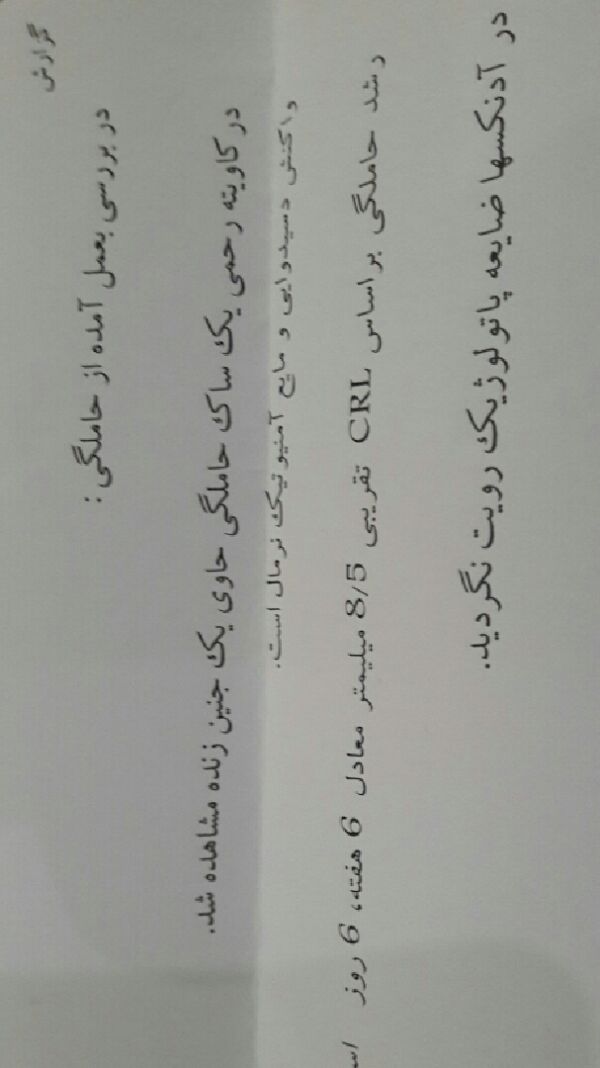 گزارش
در بررسی بعمل آمده از حاملگی :
در کاویته رحمی یک ساک حاملگی حاوی یک جنین زنده مشاهده شد.
واکنش دسیدوایی و مایع آمنیوتیک نرمال است.
رشد حاملگی براساس CRL تقریبی 8/5 میلیمتر معادل 6 هفته، 6 روز
در آدنکسها ضایعه پاتولوژیک رویت نگردید.